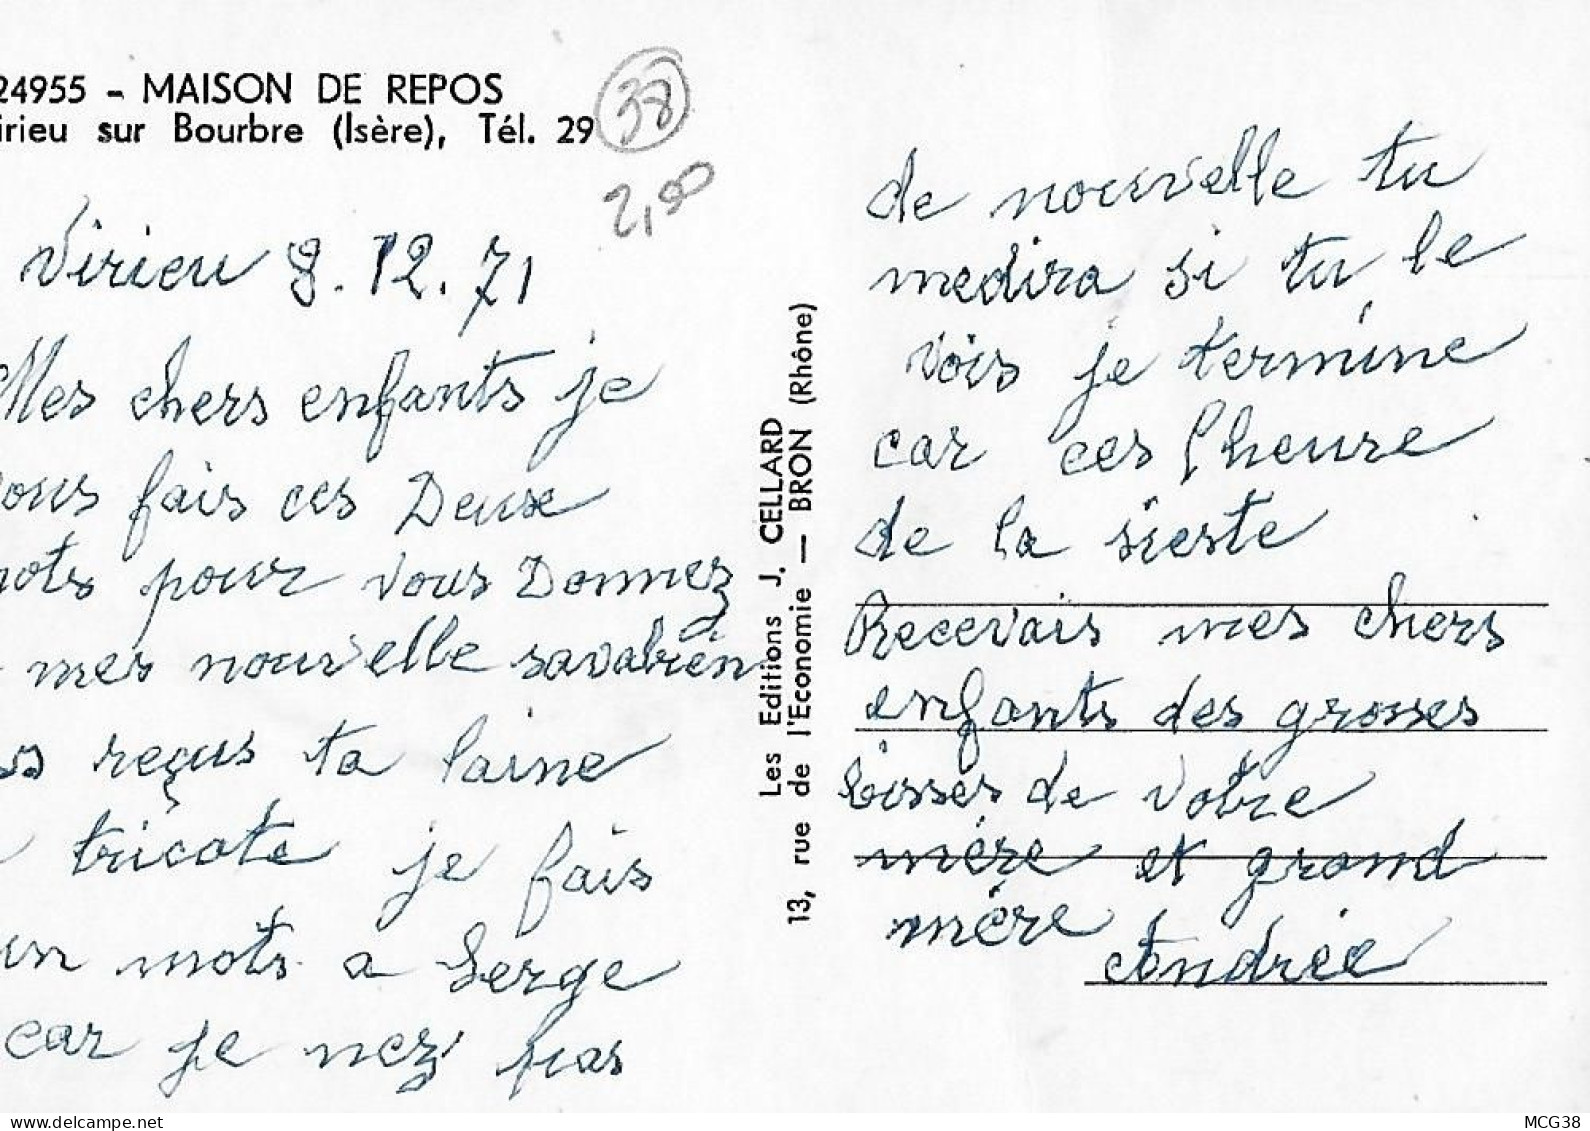 24955 - MAISON DE REPOS
irieu sur Bourbre (Isère), Tél. 29
38
2,00
Virieu 8.12.71
Mes chers enfants je
ous fais ces Deux
mots pour vous Donnez
mes nouvelle savabien
reçus ta laine
tricote je fais
un mots a Serge
car je nez pas
Les Editions J. CELLARD
13, rue de l'Economie — BRON (Rhône)
de nouvelle tu
medira si tu le
vois je termine
car ces l'heure
de la sieste
Recevais mes chers
enfants des grosses
bisses de votre
mère et grand
mère
Andrée
www.delcampe.net
MCG38